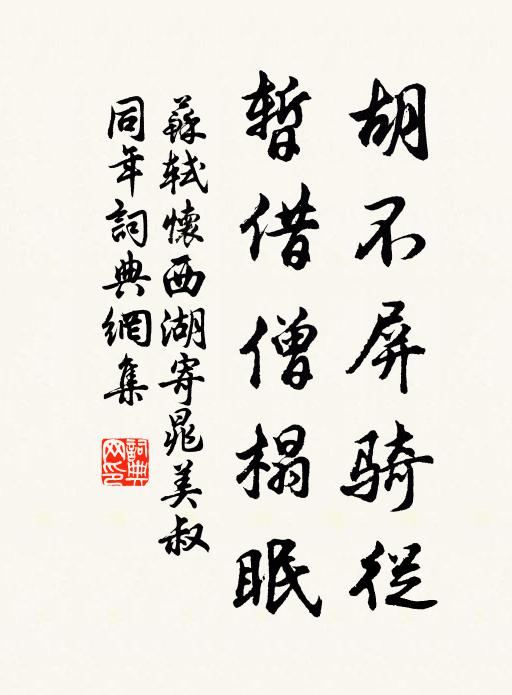 胡不屏騎從
暫借僧榻眠
蘇軾懷西湖寄晁美叔
同年詞典網集
詞典網印